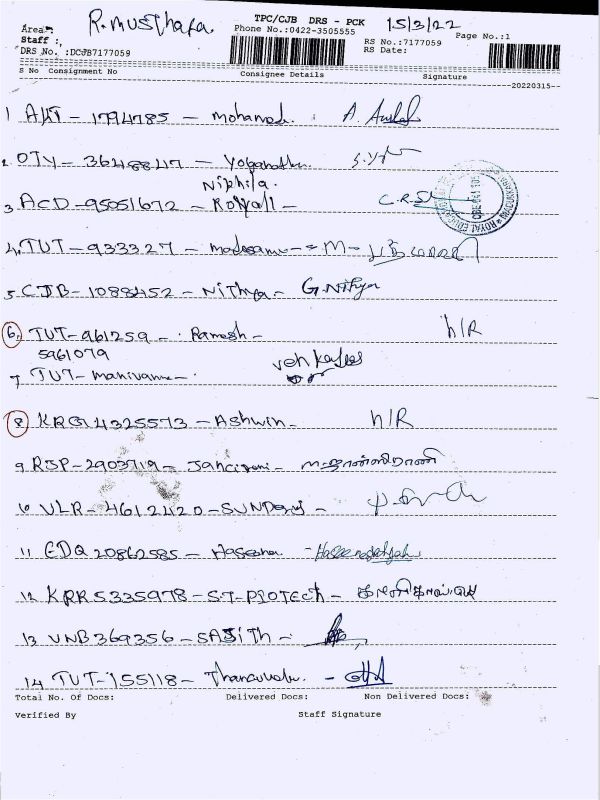 TPC/CJB DRS - PCK 15/3/22
Area: R. Musthafa Phone No.:0422-3505555 Page No.:1
Staff :, RS No.:7177059
DRS No. :DCJB7177059 RS Date:
S No Consignment No Consignee Details Signature
20220315
1 AKT - 1794785 - Mohamad
2. OTY - 3648847 - Yoganath
Nikhila.
3. ACD - 95051672 - Royall - C.R.
4. TUT - 933327 - madasamy - M -
5. CJB - 1088452 - Nithya - G. Nithya
6. TUT - 961259 - Ramesh - h/R
5961079
7. TUT - Manivanna - Venkatesh
8 KRG 4325573 - Ashwin - h/R
9. RJP - 2903719 - Jancirani - ம. ஜான்ஸிராணி
10 VLR - 4612420 - SUNDaraj -
11 EDQ 20862585 - Haseena -
12 KRR 5335978 - S.T-PROTECH -
13 VNB 369356 - SAJITH -
14 TUT - 155118 -
Total No. Of Docs: Delivered Docs: Non Delivered Docs:
Verified By Staff Signature